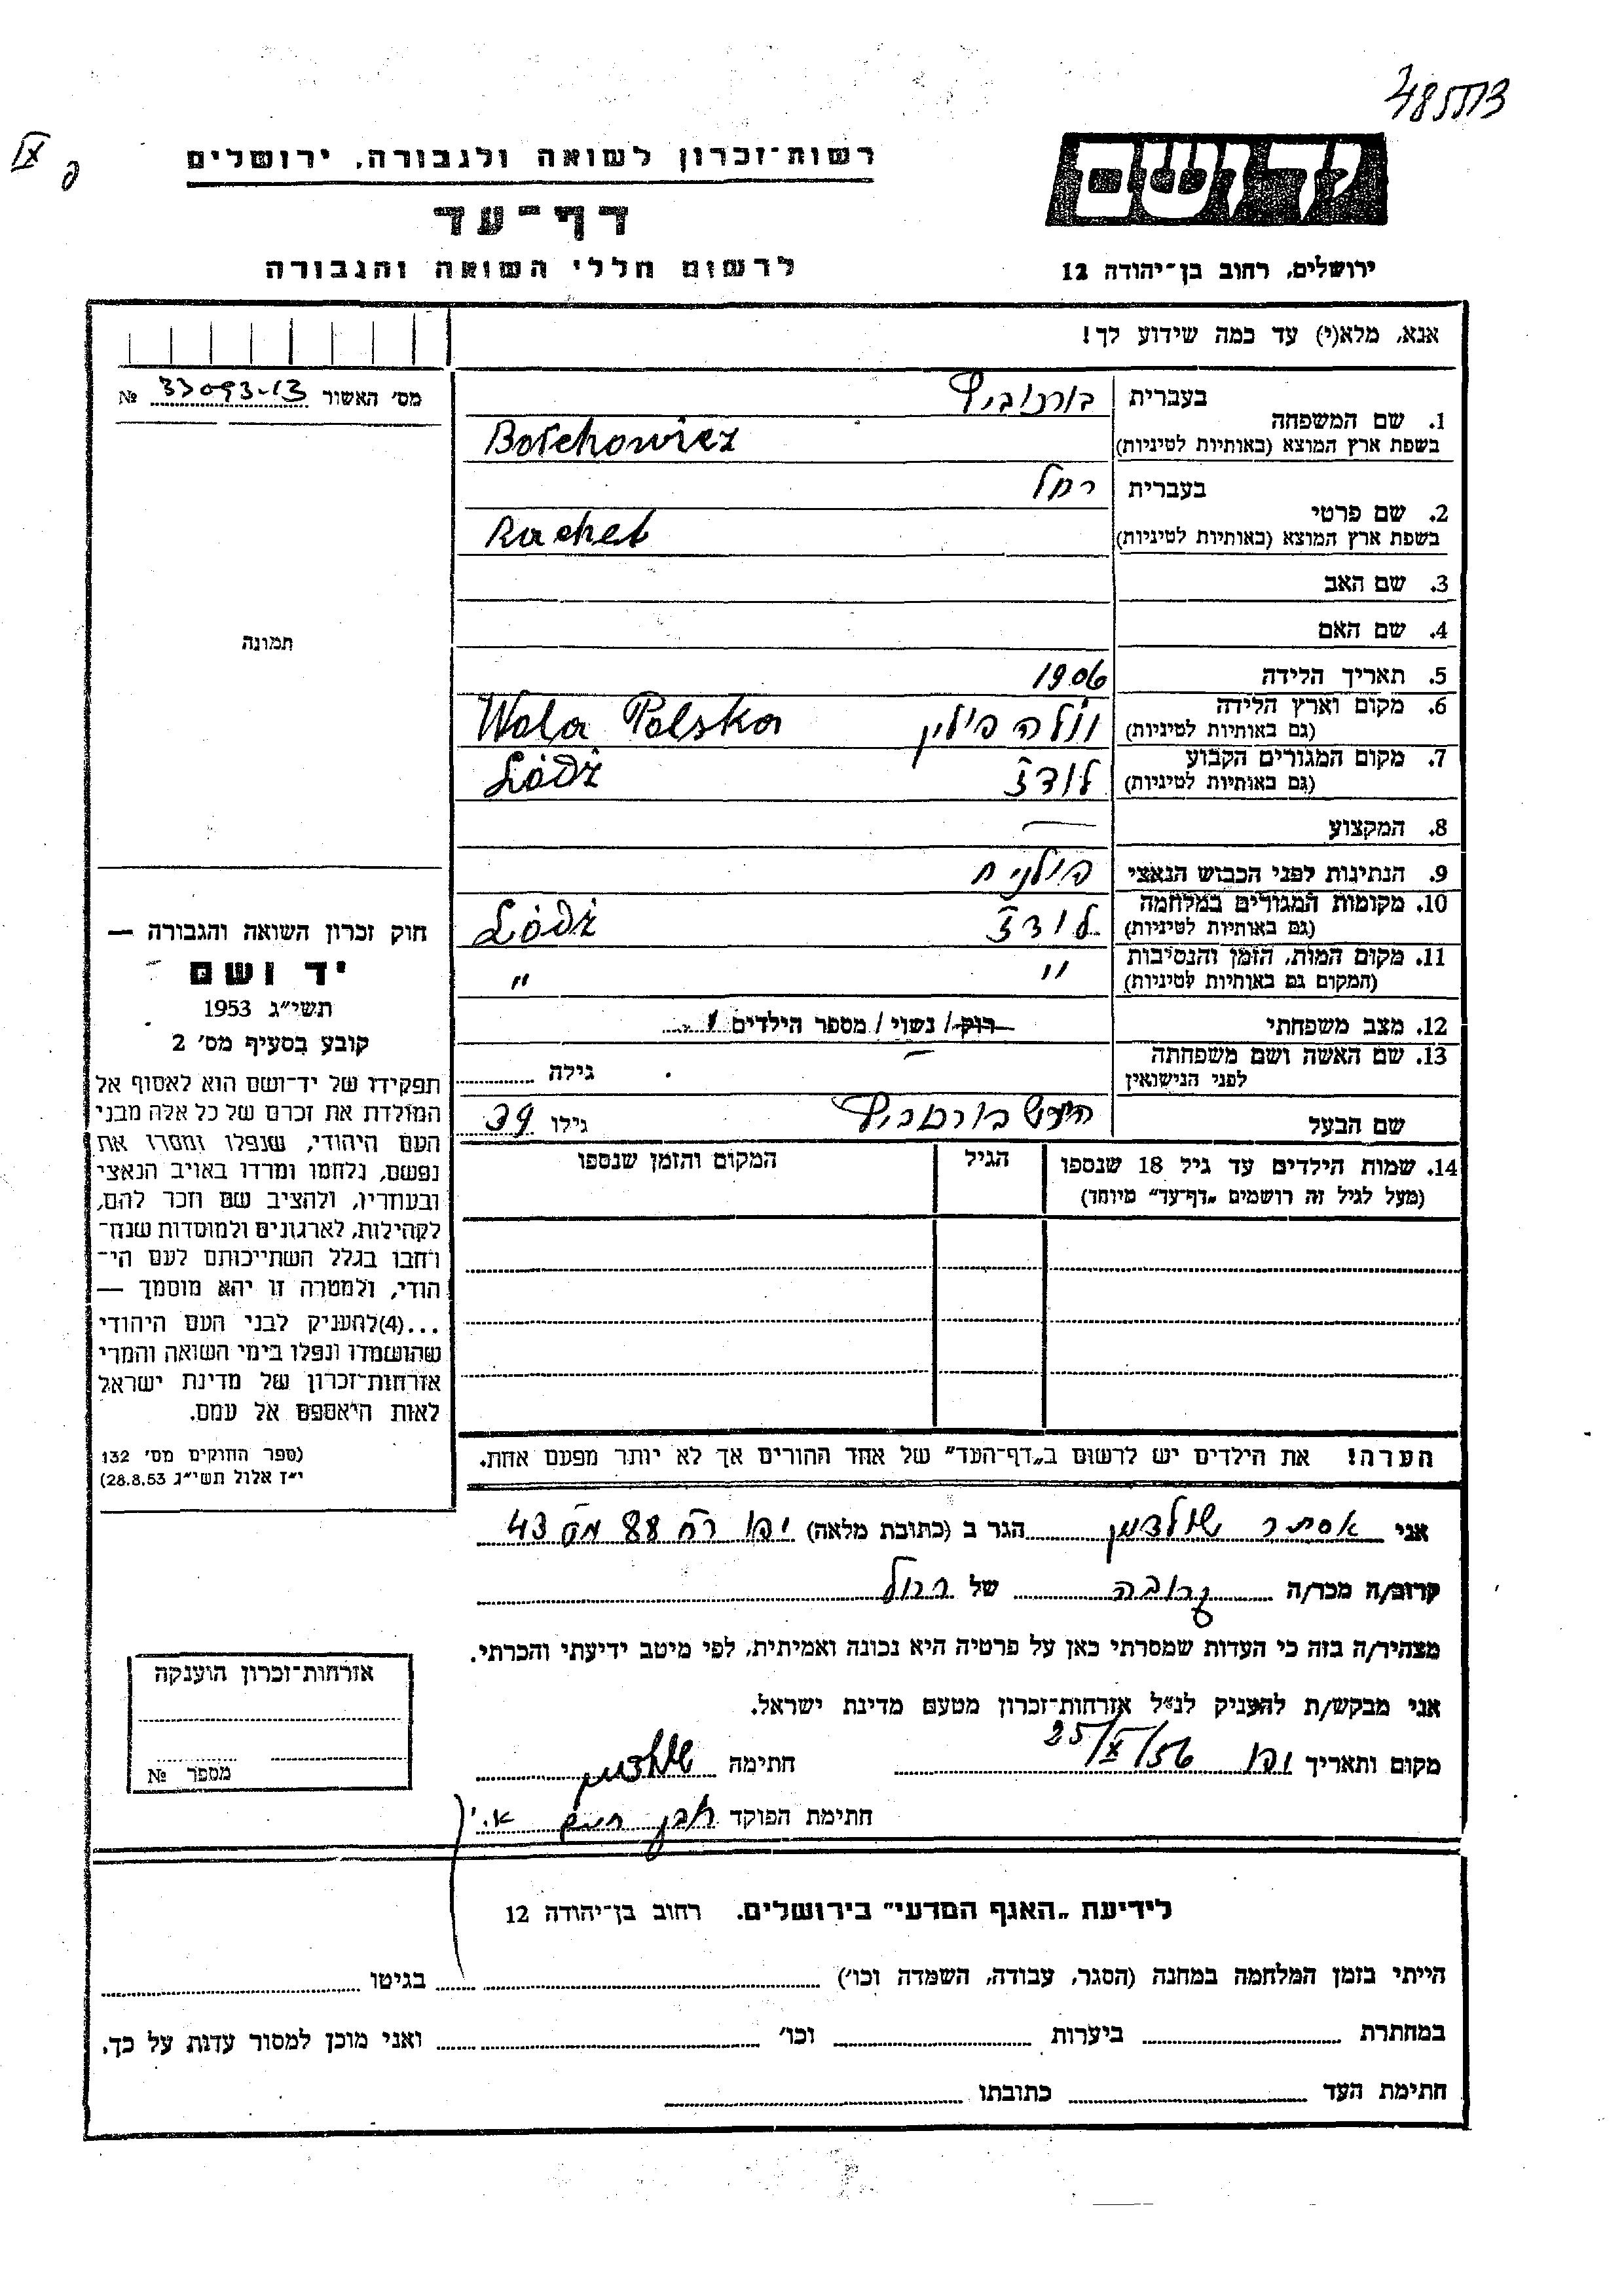 485113
IX
רשות־זכרון לשואה ולגבורה, ירושלים
ידושם
דף־עד
לרשום חללי השואה והגבורה
ירושלים, רחוב בן־יהודה 12
אנא, מלא(י) עד כמה שידוע לך!
מס' האשור № 33093-13
תמונה
1. שם המשפחה
בעברית
בשפת ארץ המוצא (באותיות לטיניות) Borchowicz
2. שם פרטי
בעברית רחל
בשפת ארץ המוצא (באותיות לטיניות) Rachel
3. שם האב
4. שם האם
5. תאריך הלידה 1906
6. מקום וארץ הלידה (גם באותיות לטיניות) וולה פולין Wola Polska
7. מקום המגורים הקבוע (גם באותיות לטיניות) לודז Łódź
8. המקצוע —
9. הנתינות לפני הכבוש הנאצי פולנית
10. מקומות המגורים במלחמה (גם באותיות לטיניות) לודז Łódź
11. מקום המות, הזמן והנסיבות (המקום גם באותיות לטיניות) " "
12. מצב משפחתי רוק/ נשוי/ מספר הילדים 1
13. שם האשה ושם משפחתה לפני הנישואין — גילה
שם הבעל גילו 39
14. שמות הילדים עד גיל 18 שנספו
(מעל לגיל זה רושמים „דף־עד" מיוחד)
הגיל
המקום והזמן שנספו
חוק זכרון השואה והגבורה —
יד ושם
תשי"ג 1953
קובע בסעיף מס' 2
תפקידו של יד־ושם הוא לאסוף אל
המולדת את זכרם של כל אלה מבני
העם היהודי, שנפלו ומסרו את
נפשם, נלחמו ומרדו באויב הנאצי
ובעוזריו, ולהציב שם וזכר להם,
לקהילות, לארגונים ולמוסדות שנח־
רחבו בגלל השתייכותם לעם הי־
הודי, ולמטרה זו יהא מוסמך —
...(4) להעניק לבני העם היהודי
שהושמדו ונפלו בימי השואה והמרי
אזרחות־זכרון של מדינת ישראל
לאות היאספם אל עמם.
(ספר החוקים מס' 132
י"ז אלול תשי"ג 28.8.53)
הערה! את הילדים יש לרשום ב„דף־העד" של אחד ההורים אך לא יותר מפעם אחת.
אני אסתר שולדמן הגר ב (כתובת מלאה) יפו רח 88 מס 43
קרוב/ה מכר/ה קרובה של רחל
מצהיר/ה בזה כי העדות שמסרתי כאן על פרטיה היא נכונה ואמיתית, לפי מיטב ידיעתי והכרתי.
אני מבקש/ת להעניק לנ"ל אזרחות־זכרון מטעם מדינת ישראל.
מקום ותאריך יפו 25/X/56 חתימה שולדמן
חתימת הפוקד
אזרחות־זכרון הוענקה
מספר №
לידיעת „האגף המדעי" בירושלים. רחוב בן־יהודה 12
הייתי בזמן המלחמה במחנה (הסגר, עבודה, השמדה וכו') בגיטו
במחתרת ביערות וכו' ואני מוכן למסור עדות על כך.
חתימת העד כתובתו